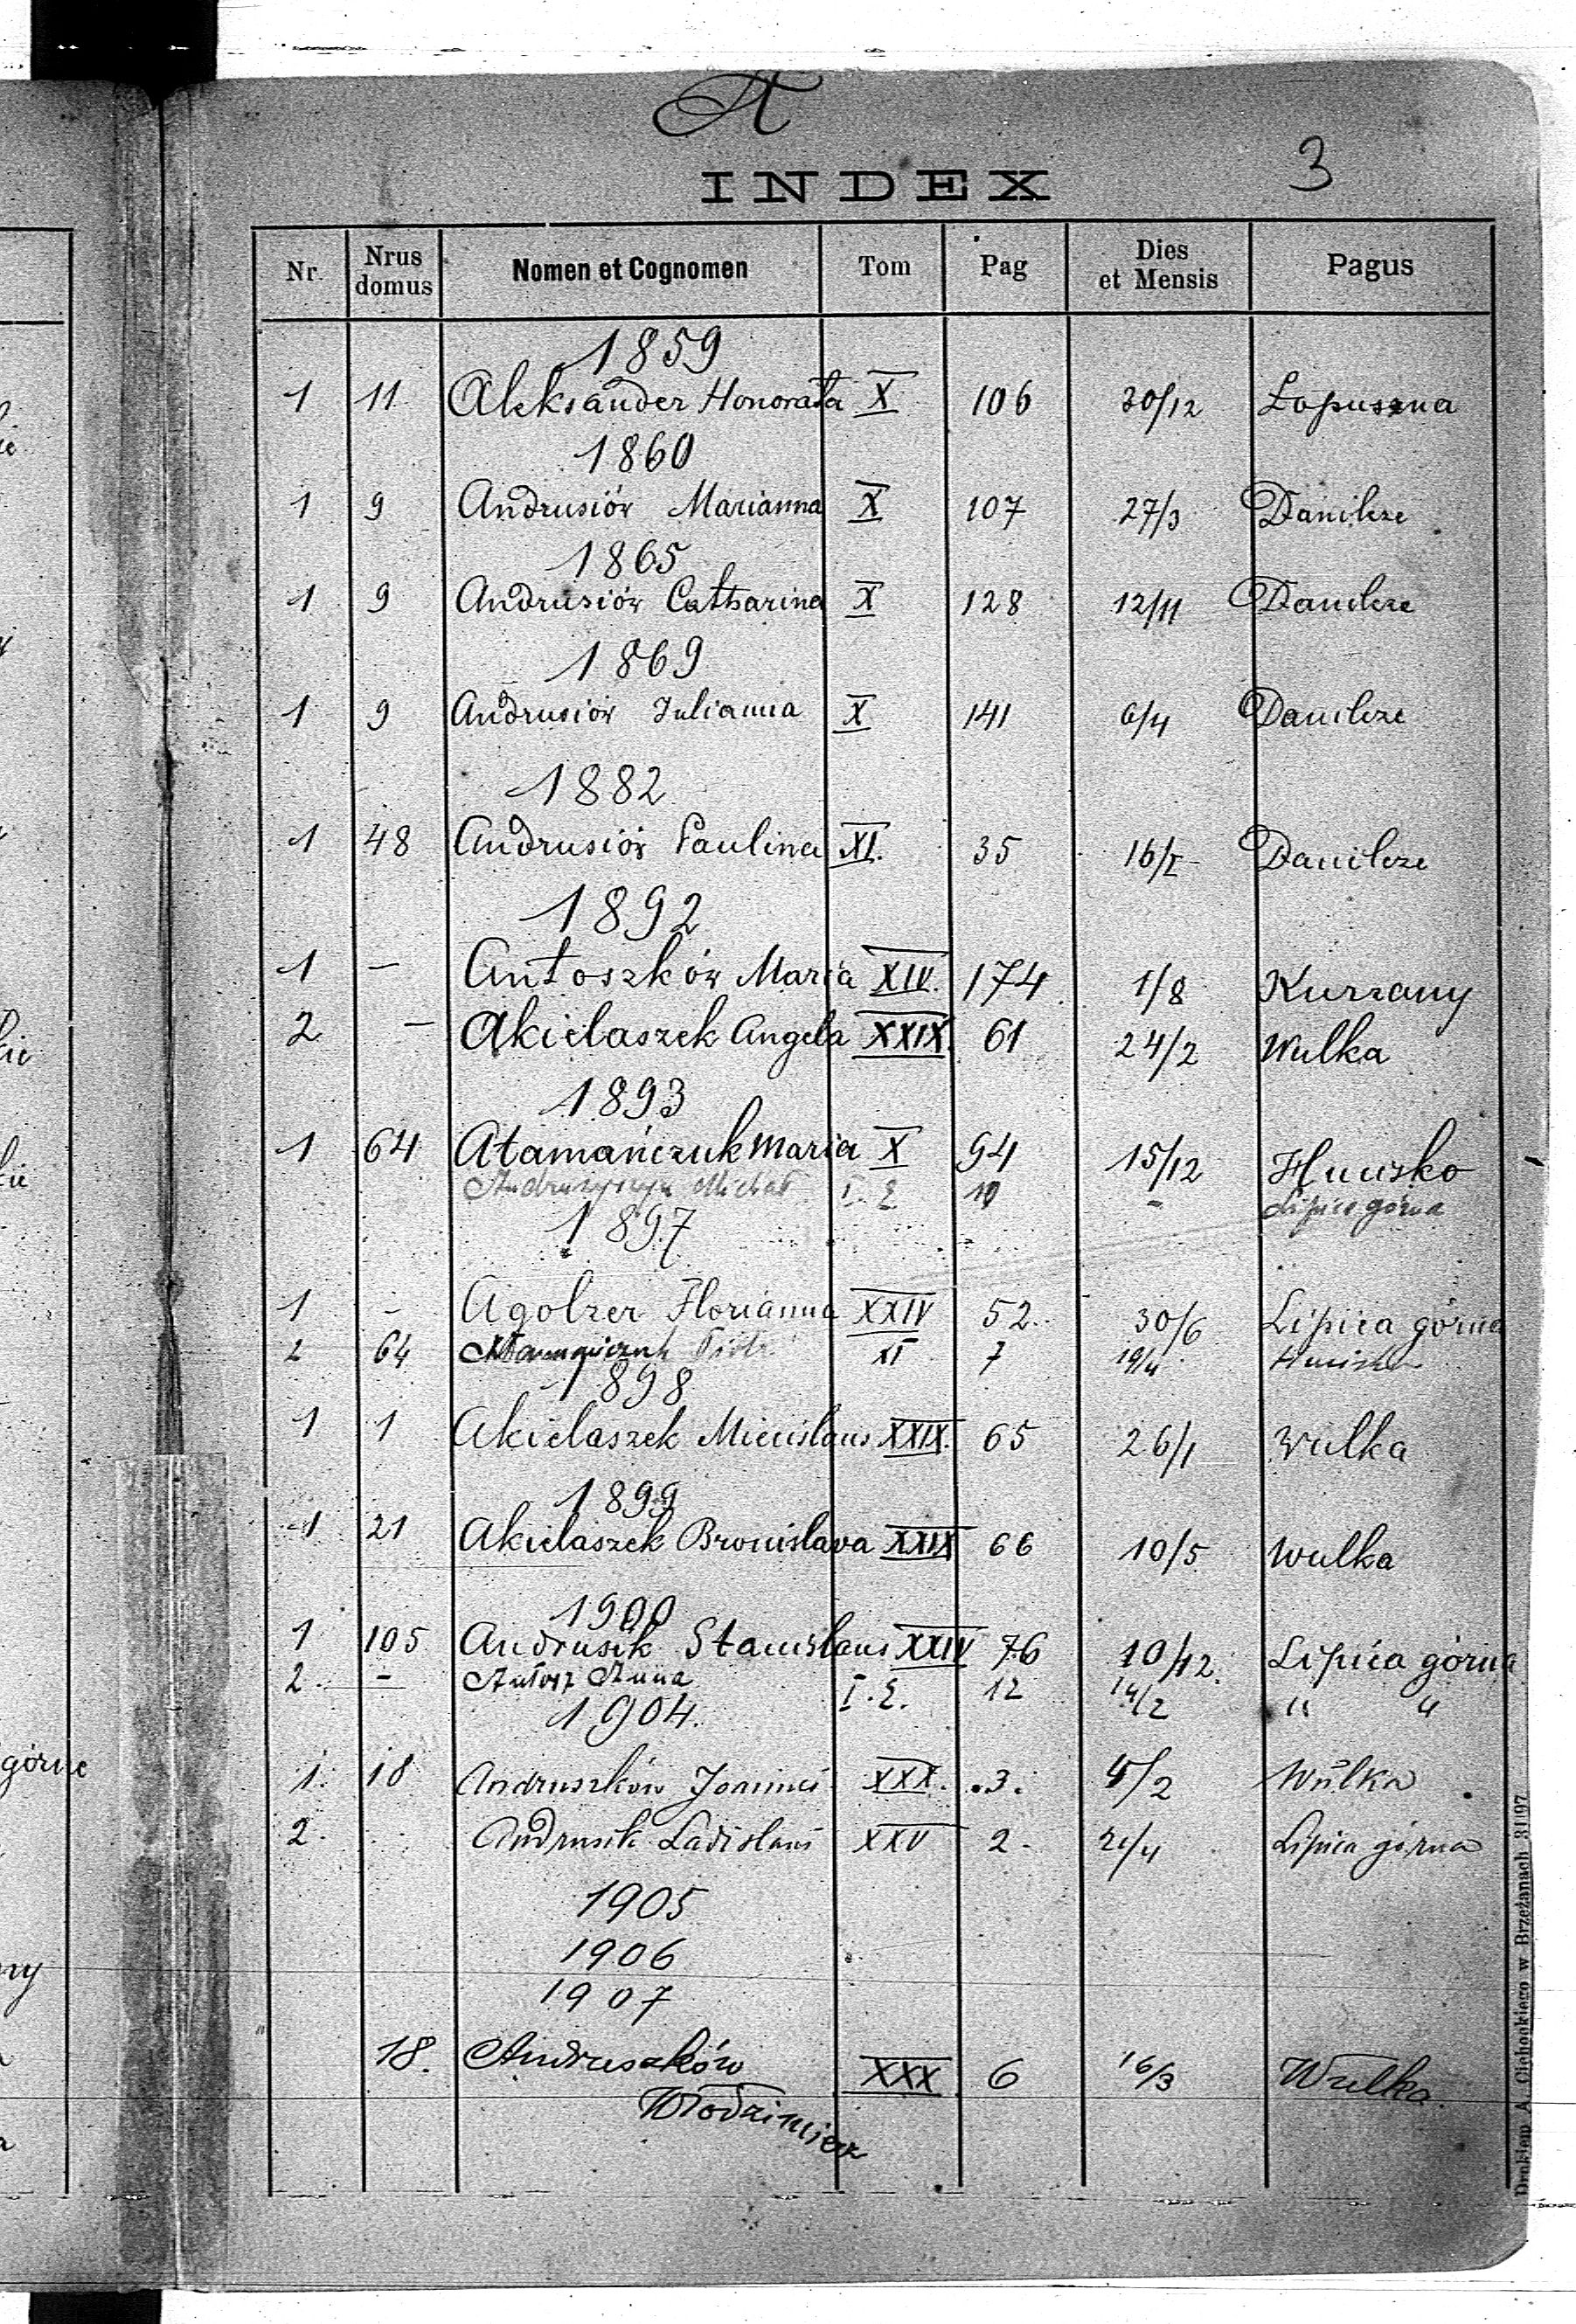 A
3
INDEX
Nr. Nrus domus Nomen et Cognomen Tom Pag Dies et Mensis Pagus
1859
1 11 Aleksander Honorata X 106 30/12 Lopuszna
1860
1 9 Andrusiów Marianna X 107 27/3 Danilcze
1865
1 9 Andrusiów Catharina X 128 12/11 Danilcze
1869
1 9 Andrusiów Julianna X 141 6/4 Danilcze
1882
1 48 Andrusiów Paulina XI. 35 16/I Danilcze
1892
1 - Antoszków Maria XIV. 174 1/8 Kurzany
2 - Akielaszek Angela XXIX. 61 24/2 Wulka
1893
1 64 Atamańczuk Maria X 94 15/12 Hucisko
Michał I. E 10 - Lipica górna
1897
1 - Agolzer Florianna XXIV 52. 30/6 Lipica górna
2 64 Piotr XI 7
1898
1 1 Akielaszek Miecislaus XXIX. 65 26/1 Wulka
1899
1 21 Akielaszek Bronislava XXIX 66 10/5 Wulka
1900
1 105 Andrusik Stanislaus XXIV 76 10/12 Lipica górna
2. - Antosz Anna I. E. 12 14/2 " "
1904.
1. 18 Andruszków Joannes XXX. 3. 4/2 Wulka
2. Andrusik Ladislaus XXV 2. 21/4 Lipica górna
1905
1906
1907
18. Andruszków XXX 6 16/3 Wulka
Włodzimierz
górne
Drukiem A. Cichockiego w Brzeżanach 31197